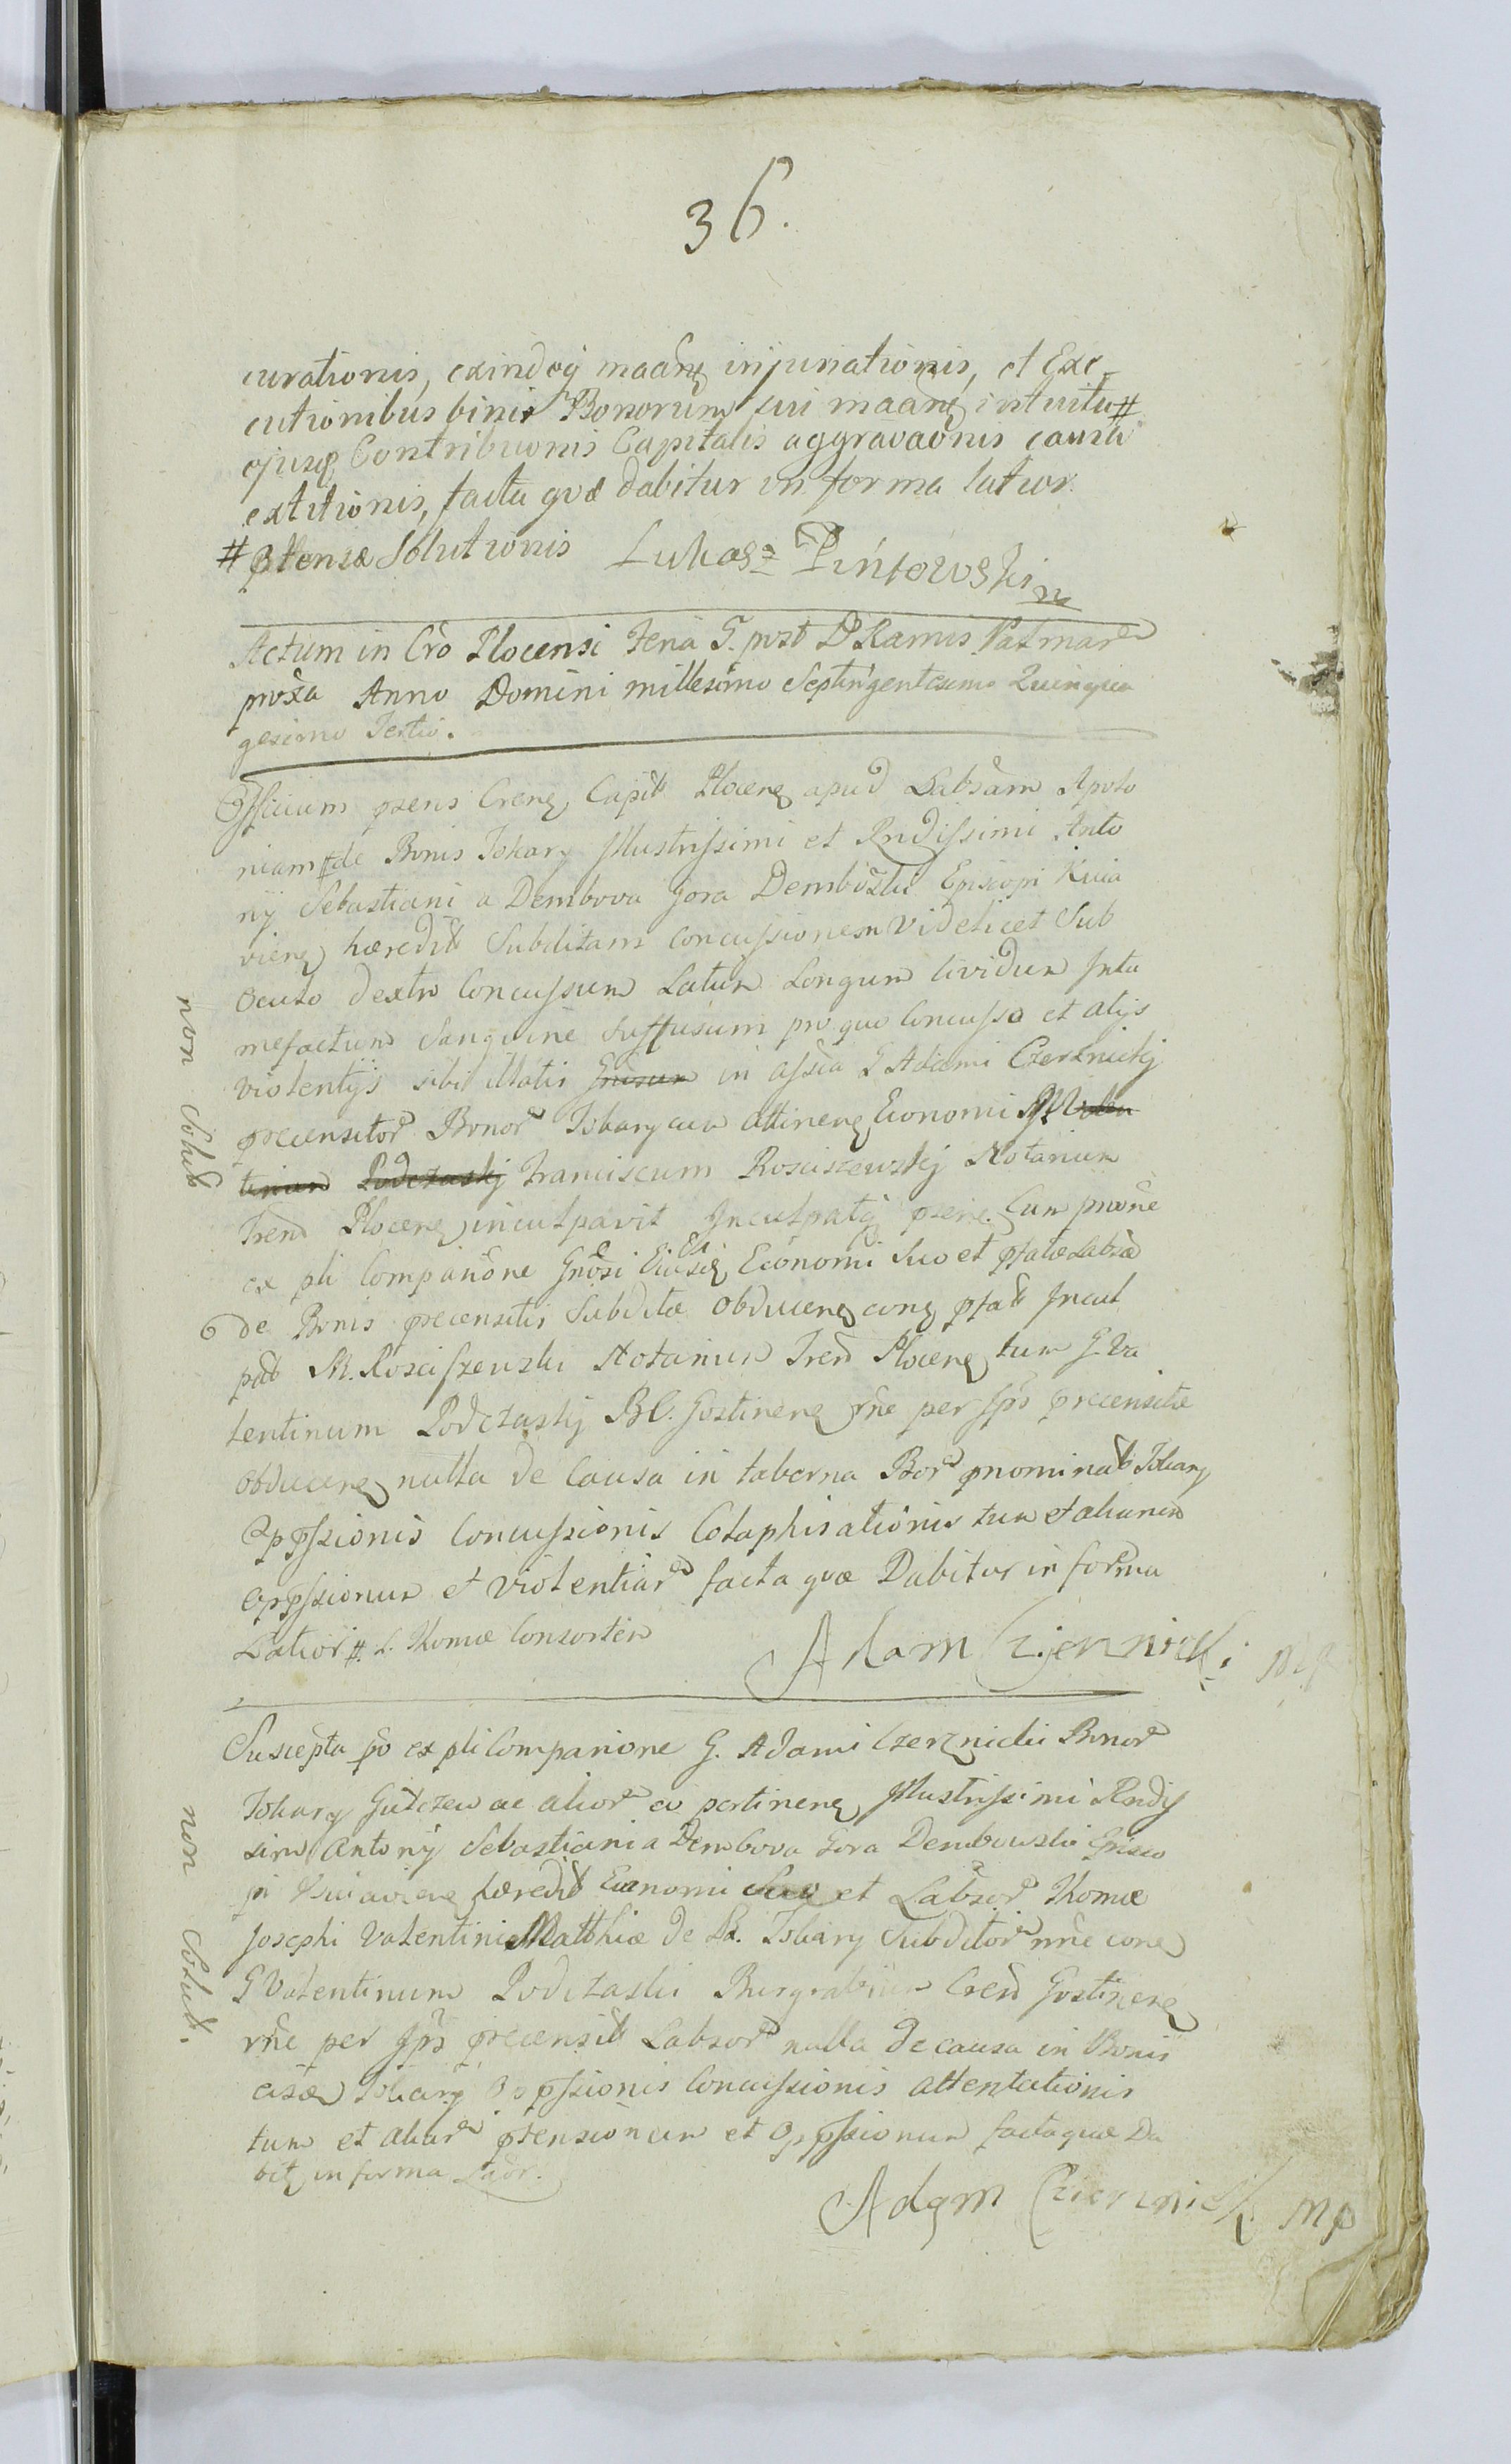 36.
curationis, exindeq maane injuriationis, et Exe-
cutionibus binis Bonorum sui maane intuitu #
ejusq Contribuonis Capitalis aggravaonis causa
extitionis, facta quæ dabitur in forma latior.
# ptensæ Solutionis Lukasz
Actum in Cro Plocensi Feria 5. post D Ramis Palmar
proxa Anno Domini millesimo Septingentesimo Quinqua
gesimo Tertio.
Officium psens Crene Capit Plocene apud Labsam Apolo
niam # de Bonis Tokary Illustrissimi et Rndissimi Anto
nij Sebastiani a Dembowa Gora Dembowski Episcopi Kuia
viene hæredit Subditam concussionem videlicet Sub
Oculo dextro Concussum Latum Longum lividum Intu
mefactum Sanguine Suffusum pro quo Concusso et alijs
violentijs sibi illatis in assia G Adami Czernickij
præcensitor Bonor Tokary cum attinene Economi
Podczaskij Franciscum Rosciszewskij Notarium
Tren Plocene inculpavit Inculpatq psene Cum praone
ex pli Comparione Gnosi Ejusdq Economi Suo et pfatæ Labsæ
de Bonis præcensitis Subditæ obducene cone pfat Incul
pat M. Rosciszewski Notarium Tren Plocene tum G. Va
lentinum Podczaskij BC. Gostinene rne per Ips præcensitæ
obducene nulla de Causa in taberna Bor pnominat Tokary
Oppssionis Concussionis Colaphisationis tum et aliarum
Oppssionum et violentiar facta quæ Dabitur in forma
Latiori # L. Thomæ Consortem
Adam Czernicki mp
Suscepta po ex pli Comparione G. Adami Czernickii Bonor
Tokary Gulczewo ac alior eo pertinene Illustrissimi Rndis
simi Antonij Sebastiani a Dembowa Gora Dembowski Episco
pi Kuiaviene hæredit Economi Suo et Labsor Thomæ
Josephi Valentini Matthiæ de B. Tokary Subditor nne cone
G Valentinum Podczaski Burgrabium Cren Gostinene
rne per Ips præcensit Labsor nulla de causa in Bonis
Tokary Oppssionis Concussionis attentationis
tum et aliar ptensionum et Oppssionum facta quæ Da
bit in forma Laor.
Adam Czernicki mp
non solut
non solut.